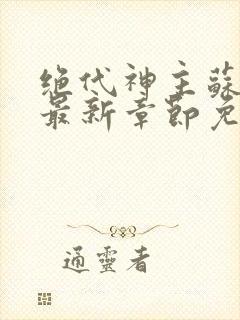 绝代神主蘇
最新章節免
通靈者